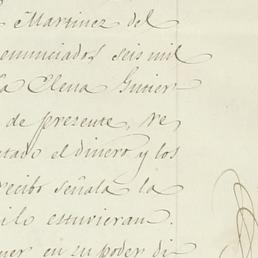 Martinez del
enunciados seis mil
Elena Gutier
de presente, re
tado el dinero y los
recibo señala la
ilo estuvieran.
en su poder di